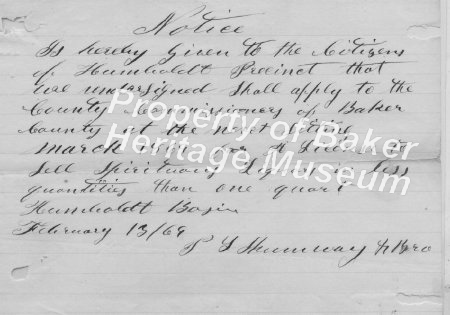 Notice
Is hereby Given to the Citizens
of Humboldt Precinct that
we undersigned Shall apply to the
County Commissioners of Baker
County at the next Sitting
March 1869 for A License to
Sell Spirituous Liquors in less
quantities than one quart
Humboldt Basin
February 13/69
P S Shumway & Bro
Property of Baker
Heritage Museum